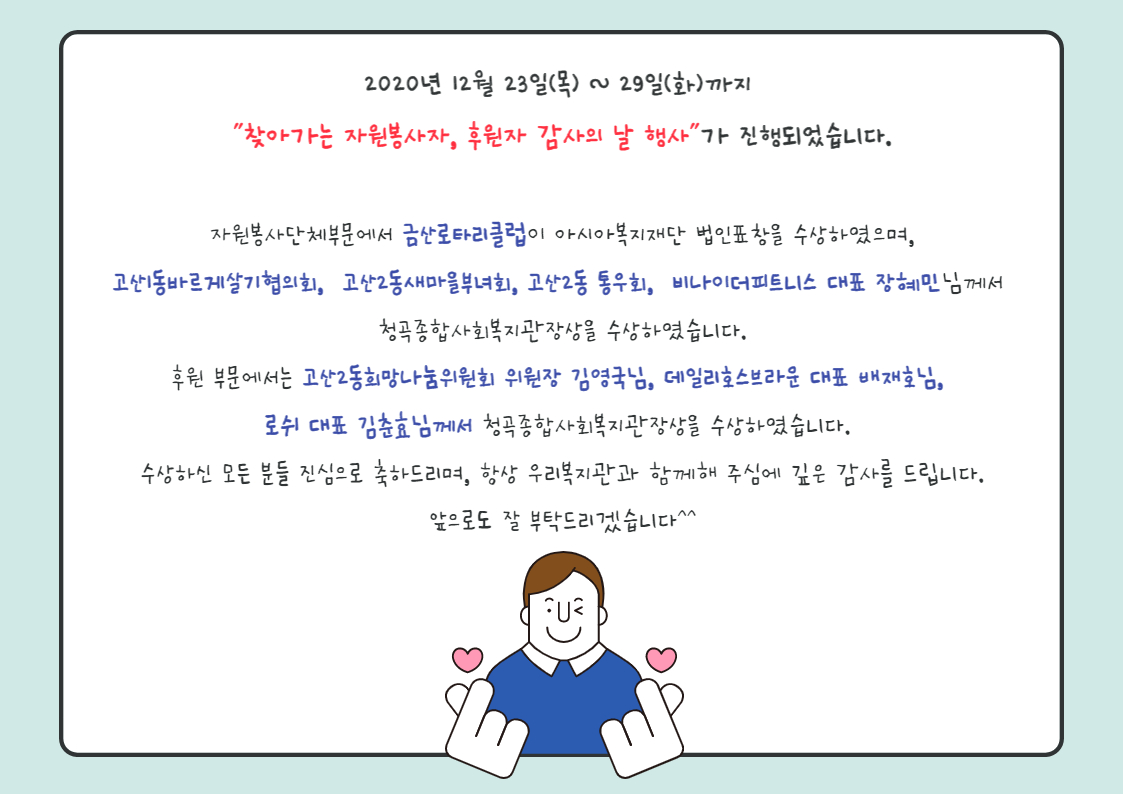 2020년 12월 23일(목) ~ 29일(화)까지
"찾아가는 자원봉사자, 후원자 감사의 날 행사"가 진행되었습니다.
자원봉사단체부문에서 금산로타리클럽이 아시아복지재단 법인표창을 수상하였으며,
고산1동바르게살기협의회, 고산2동새마을부녀회, 고산2동 통우회, 비나이더피트니스 대표 장혜민님께서
청곡종합사회복지관장상을 수상하였습니다.
후원 부문에서는 고산2동희망나눔위원회 위원장 김영국님, 데일리호스브라운 대표 배재호님,
로쉬 대표 김춘효님께서 청곡종합사회복지관장상을 수상하였습니다.
수상하신 모든 분들 진심으로 축하드리며, 항상 우리복지관과 함께해 주심에 깊은 감사를 드립니다.
앞으로도 잘 부탁드리겠습니다^^